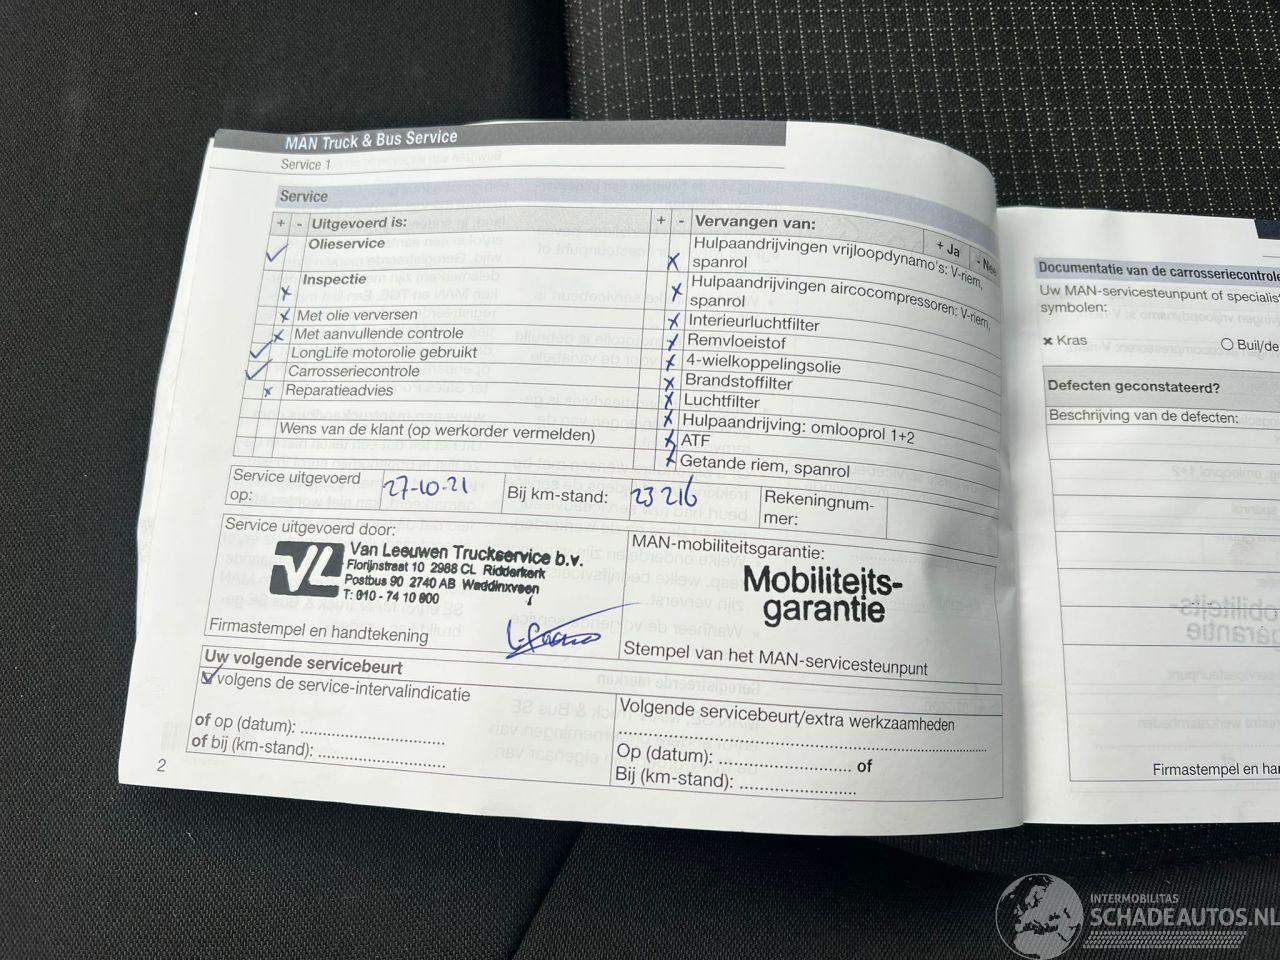 MAN Truck & Bus Service
Service 1
Service
+ - Uitgevoerd is:
Olieservice
Inspectie
Met olie verversen
Met aanvullende controle
LongLife motorolie gebruikt
Carrosseriecontrole
Reparatieadvies
Wens van de klant (op werkorder vermelden)
+ - Vervangen van:
+ Ja
- Nee
Hulpaandrijvingen vrijloopdynamo's: V-riem,
spanrol
Hulpaandrijvingen aircocompressoren: V-riem,
spanrol
Interieurluchtfilter
Remvloeistof
4-wielkoppelingsolie
Brandstoffilter
Luchtfilter
Hulpaandrijving: omlooprol 1+2
ATF
Getande riem, spanrol
Service uitgevoerd
op:
27-10-21
Bij km-stand:
23 216
Rekeningnum-
mer:
Service uitgevoerd door:
VL
Van Leeuwen Truckservice b.v.
Florijnstraat 10 2988 CL Ridderkerk
Postbus 90 2740 AB Waddinxveen
T: 010 - 74 10 800
Firmastempel en handtekening
MAN-mobiliteitsgarantie:
Mobiliteits-
garantie
Stempel van het MAN-servicesteunpunt
Uw volgende servicebeurt
volgens de service-intervalindicatie
of op (datum): ..........................
of bij (km-stand): ..........................
Volgende servicebeurt/extra werkzaamheden
Op (datum): .......................... of
Bij (km-stand): ..........................
2
Documentatie van de carrosseriecontrole
Uw MAN-servicesteunpunt of specialist
symbolen:
× Kras
Buil/de
Defecten geconstateerd?
Beschrijving van de defecten:
Firmastempel en han
INTERMOBILITAS
SCHADEAUTOS.NL